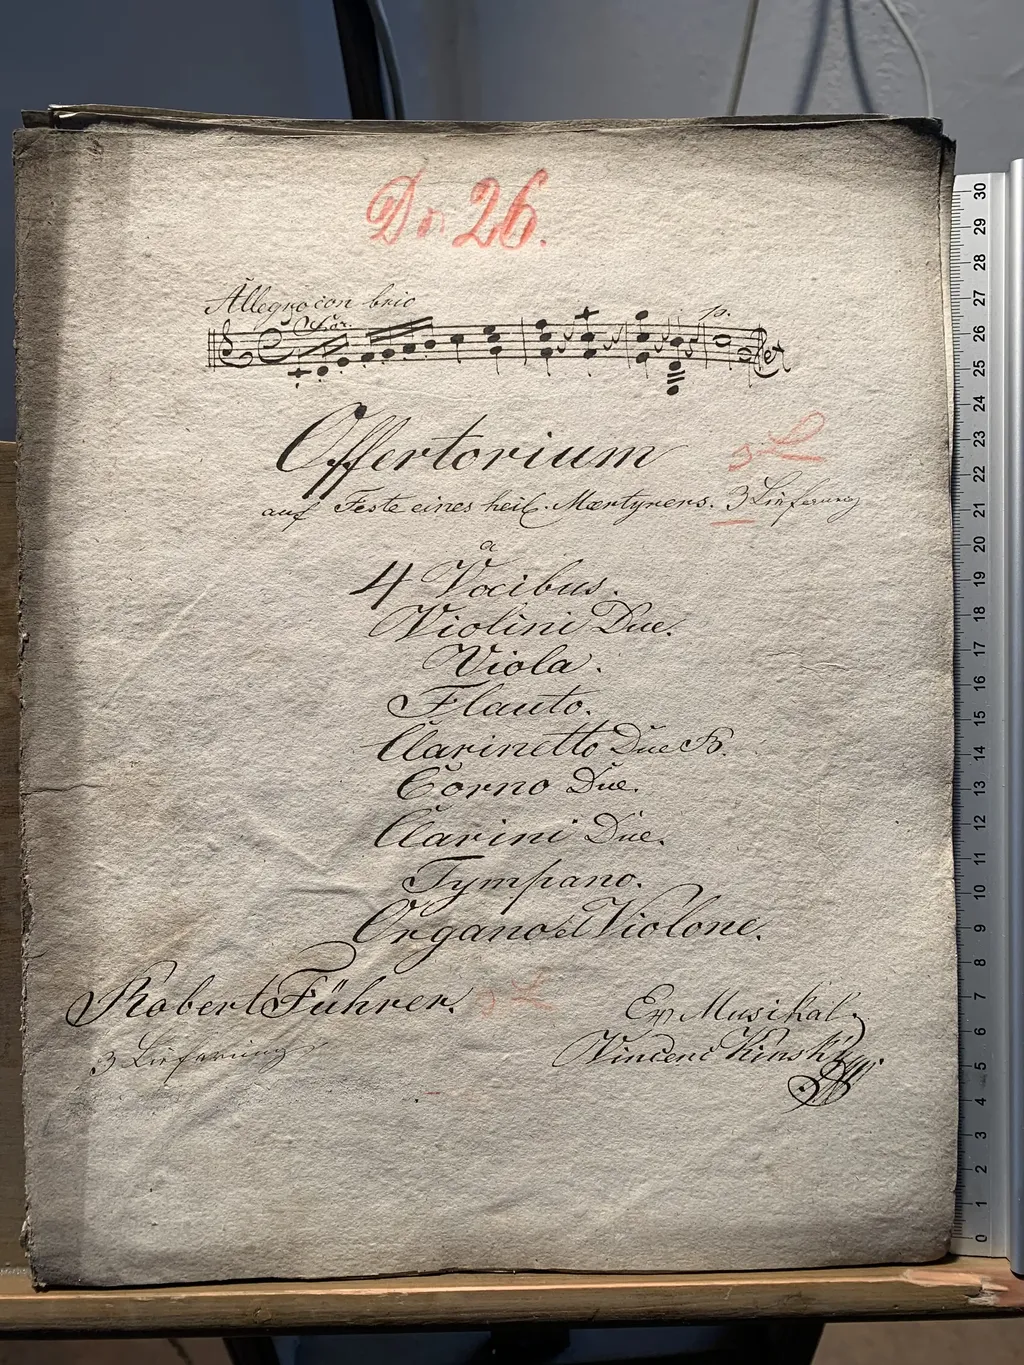 No 26.
Allegro con brio
p.
Offertorium
3 L
auf Feste eines heil. Mærtyrers. 3 Lieferung
a
4 Vocibus.
Violini Due.
Viola.
Flauto.
Clarinetto Due B.
Corno Due.
Clarini Due.
Tympano.
Organo et Violone.
Robert Führer.
3 L
3 Lieferung
Ex Musikal.
Vincenc Kinský
30
29
28
27
26
25
24
23
22
21
20
19
18
17
16
15
14
13
12
11
10
9
8
7
6
5
4
3
2
1
0